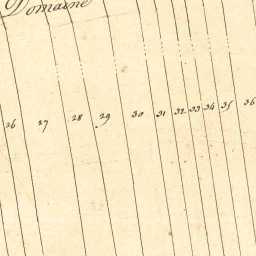 Domaine
26 27 28 29 30 31 32 33 34 35 36